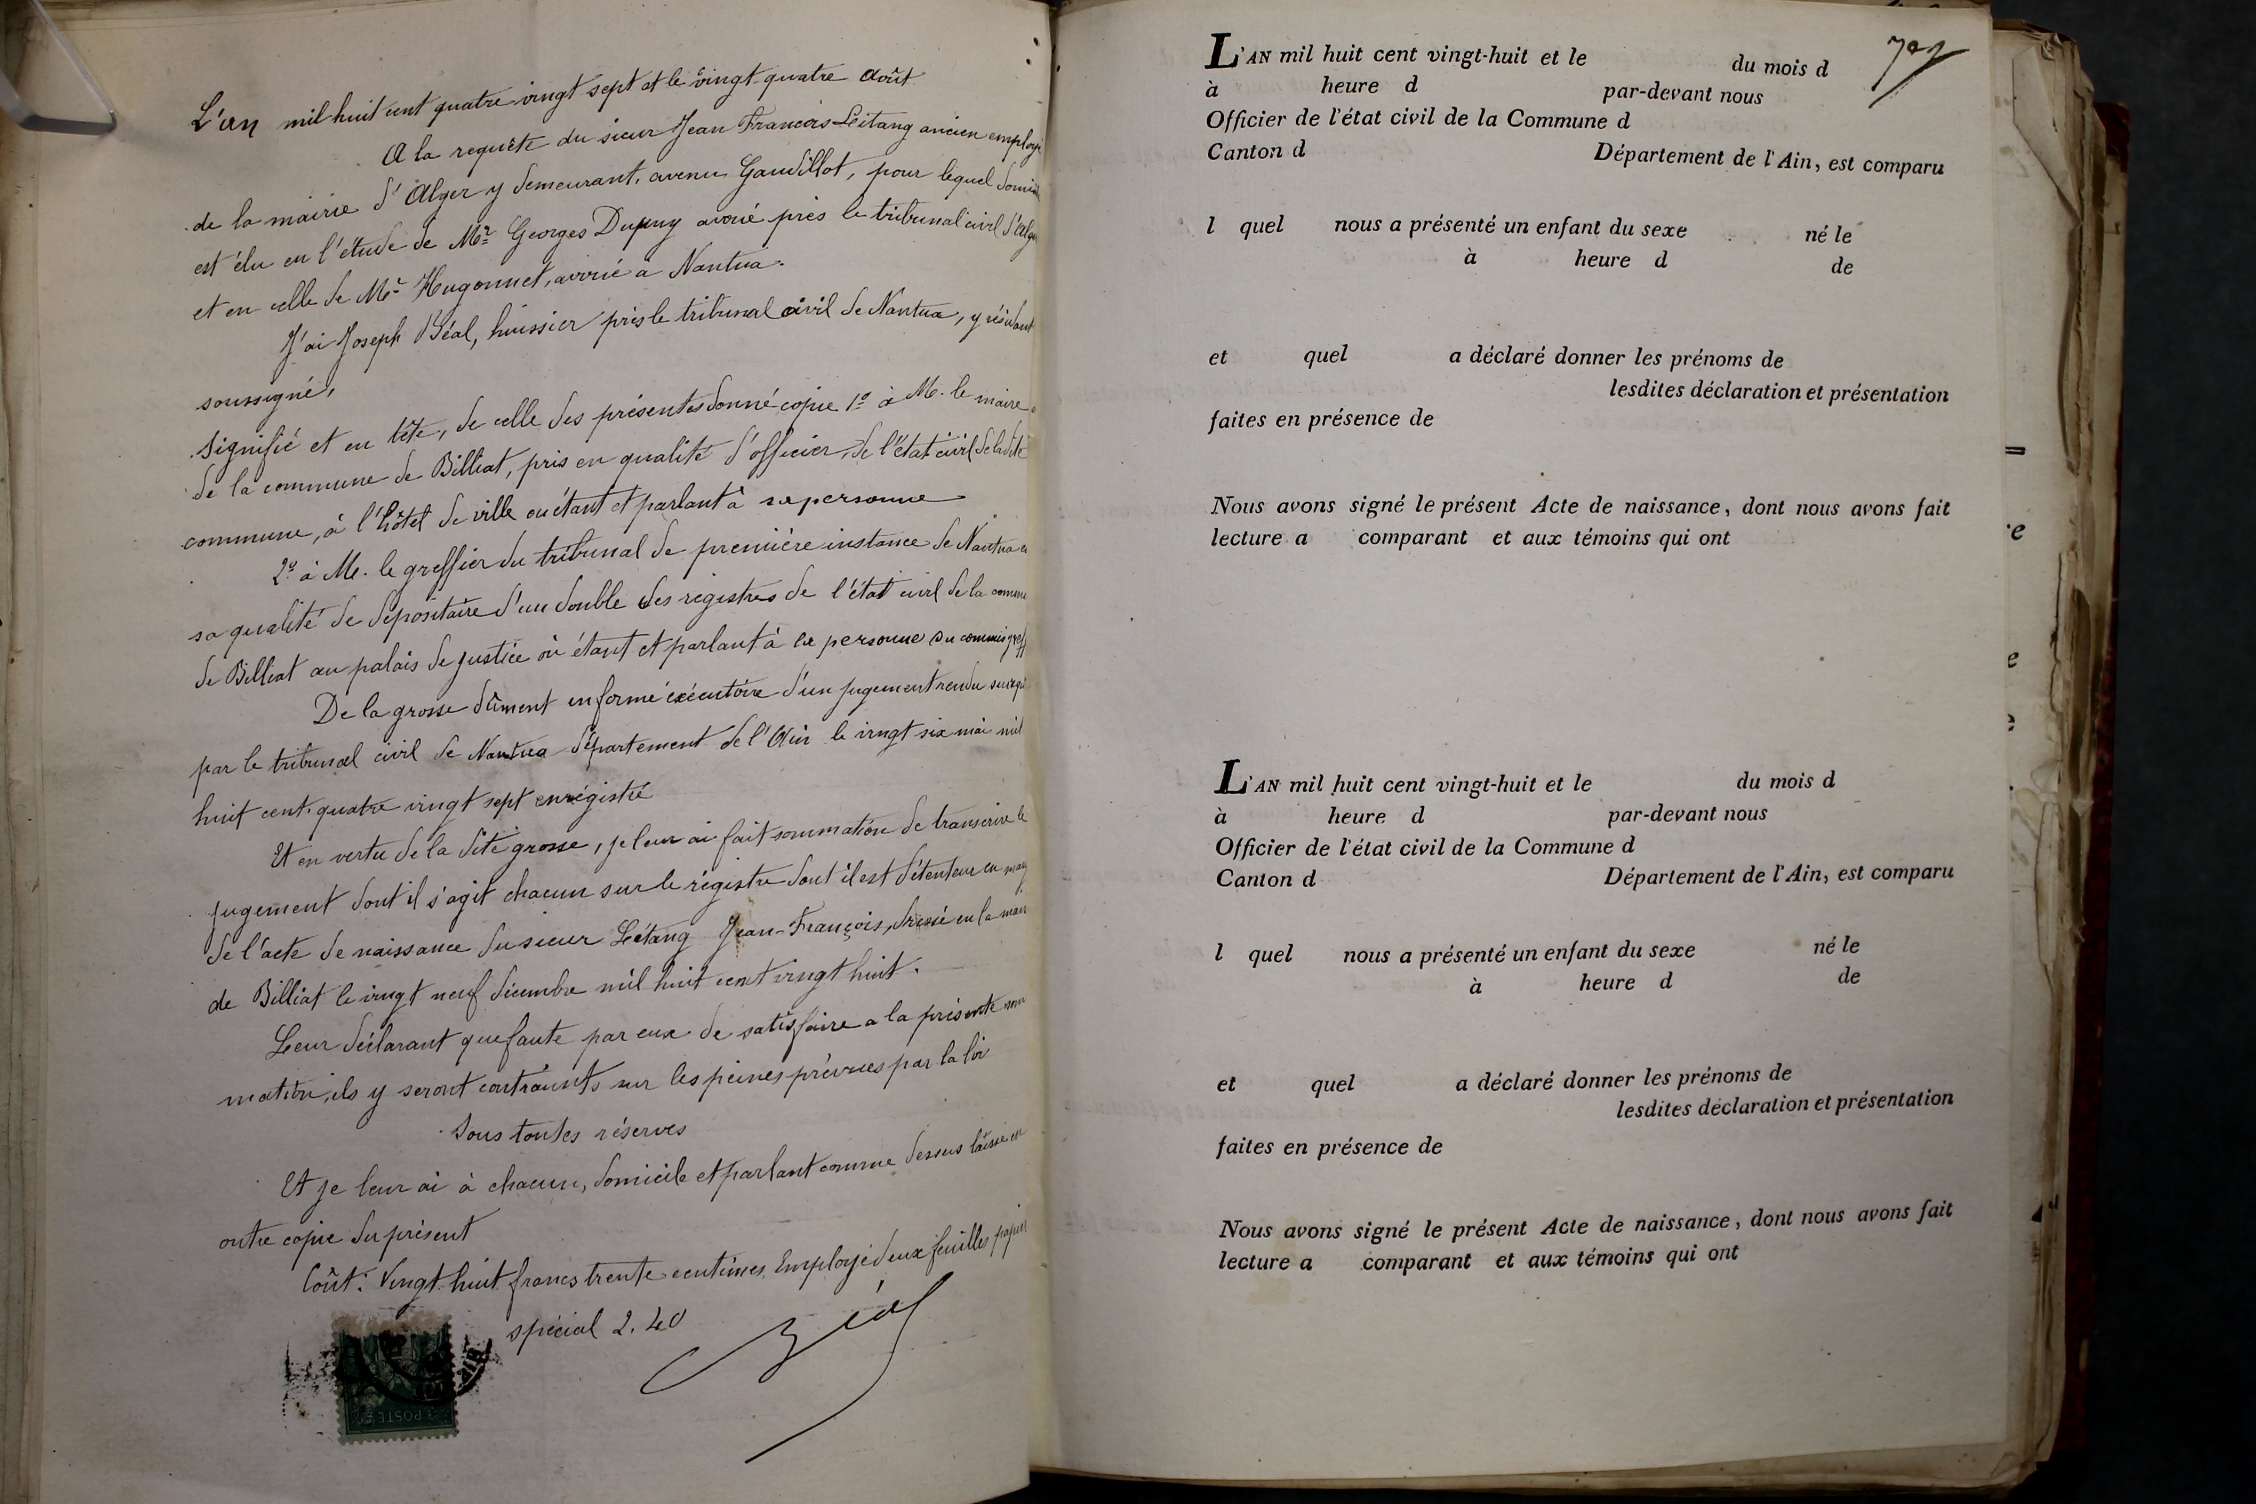 L'an mil huit cent quatre vingt sept et le vingt quatre Août
A la requête du sieur Jean François Létang ancien employé
de la mairie d'Alger y demeurant, avenue Gandillot, pour lequel domicile
est élu en l'étude de Me Georges Dupuy avoué près le tribunal civil d'Alger
et en celle de Me Hugonnet, avoué à Nantua.
J'ai Joseph Réal, huissier près le tribunal civil de Nantua, y résidant
soussigné,
signifié et en tête, de celle des présentes donné copie 1o à M. le maire
de la commune de Billiat, pris en qualité d'officier de l'état civil de ladite
commune, à l'hôtel de ville où étant et parlant à sa personne
2o à M. le greffier du tribunal de première instance de Nantua en
sa qualité de dépositaire d'un double des registres de l'état civil de la commune
de Billiat au palais de justice où étant et parlant à la personne du commis greff
De la grosse dûment en forme exécutoire d'un jugement rendu sur requ
par le tribunal civil de Nantua département de l'Ain le vingt six mai mil
huit cent quatre vingt sept enregistré
Et en vertu de la dite grosse, je leur ai fait sommation de transcrire le
jugement dont il s'agit chacun sur le régistre dont il est détenteur en marg
de l'acte de naissance du sieur Létang Jean-François, dressé en la mair
de Billiat le vingt neuf décembre mil huit cent vingt huit.
Leur déclarant que faute par eux de satisfaire a la présente som
mation, ils y seront contraints sur les peines prévues par la loi
Sous toutes réserves
Et je leur ai à chacun, domicile et parlant comme dessus laissé en
outre copie du présent
Coût: Vingt huit francs trente centimes Employé deux feuilles papier
spécial 2.40
Réal
POSTES
AIN
L'AN mil huit cent vingt-huit et le du mois d
à heure d par-devant nous
Officier de l'état civil de la Commune d
Canton d Département de l'Ain, est comparu
l quel nous a présenté un enfant du sexe né le
à heure d de
et quel a déclaré donner les prénoms de
lesdites déclaration et présentation
faites en présence de
Nous avons signé le présent Acte de naissance, dont nous avons fait
lecture a comparant et aux témoins qui ont
L'AN mil huit cent vingt-huit et le du mois d
à heure d par-devant nous
Officier de l'état civil de la Commune d
Canton d Département de l'Ain, est comparu
l quel nous a présenté un enfant du sexe né le
à heure d de
et quel a déclaré donner les prénoms de
lesdites déclaration et présentation
faites en présence de
Nous avons signé le présent Acte de naissance, dont nous avons fait
lecture a comparant et aux témoins qui ont